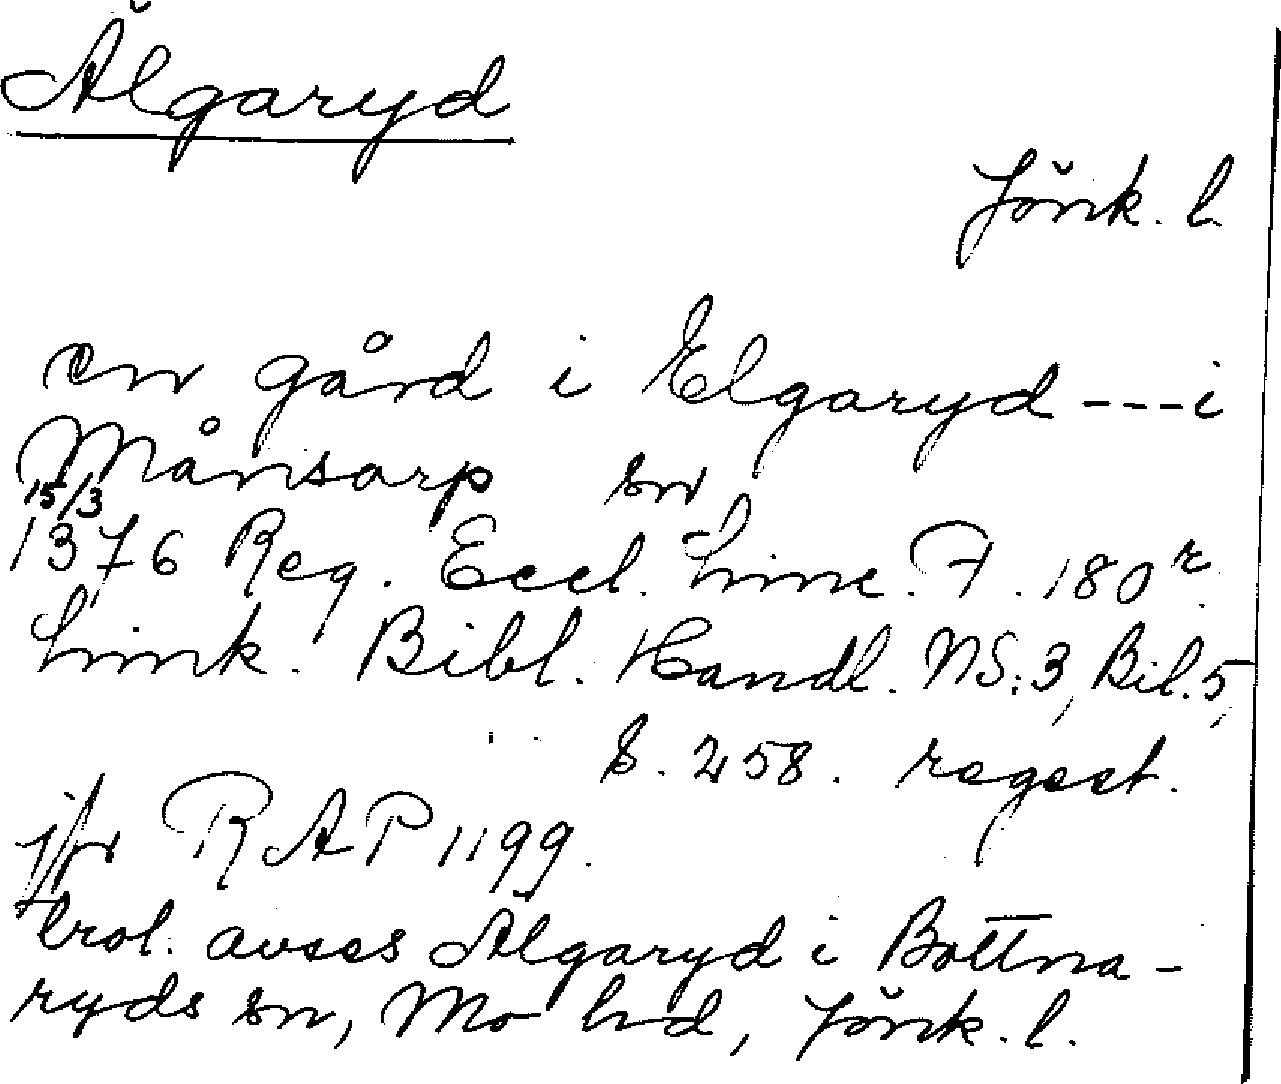 Älgaryd
Jönk. l.
en gård i Elgaryd --- i
Månsarp sn
15/3
1376 Reg. Eccl. Linc. F. 180r.
Link. Bibl. Handl. NS:3, Bil. 5,
S. 258. regest.
jfr RAP 1199.
trol. avses Älgaryd i Bottna-
ryds sn, Mo hd, Jönk. l.